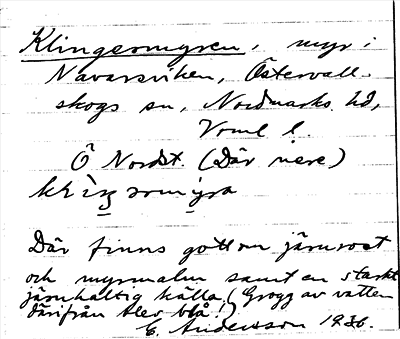 Klingermyren, myr i
Navarsviken, Östervall-
skogs sn, Nordmarks hd,
Vrml l.
Ö Nordst. (Där nere)
Där finns gott om järnrost
och myrmalm samt en starkt
järnhaltig källa. (Grogg av vatten
därifrån blev blå!)
E. Andersson 1936.